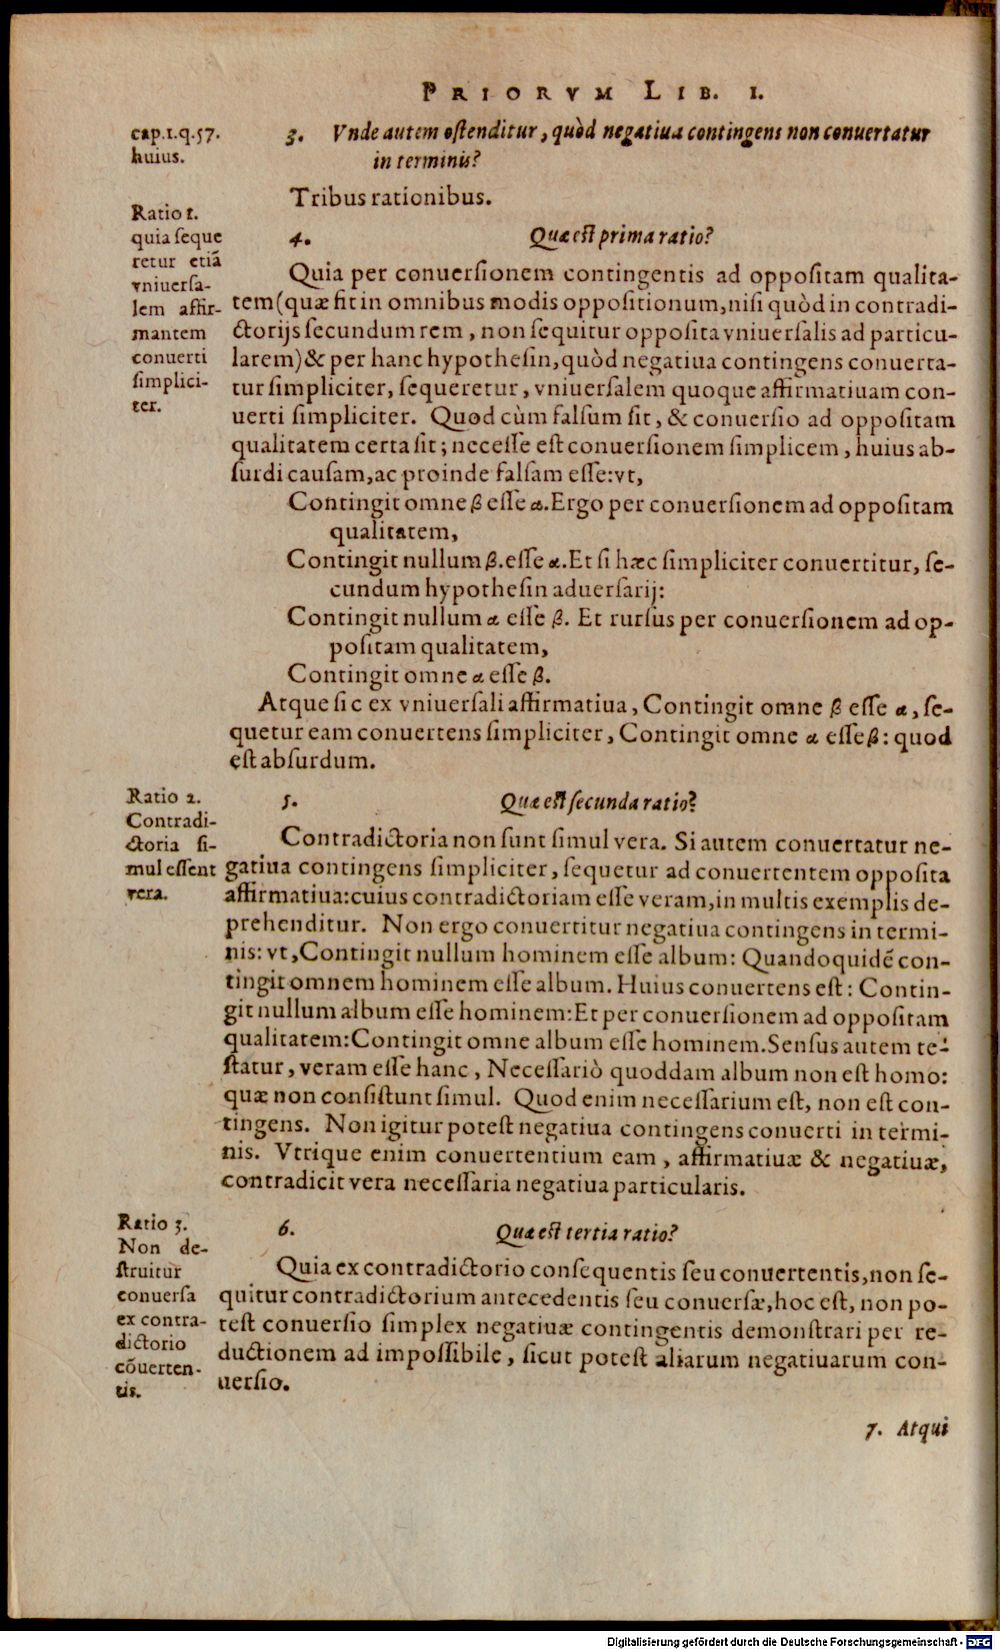 PRIORVM LIB. I.
cap.1.q.57.
huius.
3. Vnde autem ostenditur, quòd negatiua contingens non conuertatur
in terminis?
Tribus rationibus.
Ratio 1.
quia seque
retur etiã
vniuersa-
lem affir-
mantem
conuerti
simplici-
ter.
4. Quæ est prima ratio?
Quia per conuersionem contingentis ad oppositam qualita-
tem (quæ fit in omnibus modis oppositionum, nisi quòd in contradi-
ctorijs secundum rem, non sequitur opposita vniuersalis ad particu-
larem) & per hanc hypothesin, quòd negatiua contingens conuerta-
tur simpliciter, sequeretur, vniuersalem quoque affirmatiuam con-
uerti simpliciter. Quod cùm falsum sit, & conuersio ad oppositam
qualitatem certa sit; necesse est conuersionem simplicem, huius ab-
surdi causam, ac proinde falsam esse: vt,
Contingit omne β esse α. Ergo per conuersionem ad oppositam
qualitatem,
Contingit nullum β. esse α. Et si hæc simpliciter conuertitur, se-
cundum hypothesin aduersarij:
Contingit nullum α esse β. Et rursus per conuersionem ad op-
positam qualitatem,
Contingit omne α esse β.
Atque sic ex vniuersali affirmatiua, Contingit omne β esse α, se-
quetur eam conuertens simpliciter, Contingit omne α esse β: quod
est absurdum.
Ratio 2.
Contradi-
ctoria si-
mul essent
vera.
5. Quæ est secunda ratio?
Contradictoria non sunt simul vera. Si autem conuertatur ne-
gatiua contingens simpliciter, sequetur ad conuertentem opposita
affirmatiua: cuius contradictoriam esse veram, in multis exemplis de-
prehenditur. Non ergo conuertitur negatiua contingens in termi-
nis: vt, Contingit nullum hominem esse album: Quandoquidē con-
tingit omnem hominem esse album. Huius conuertens est: Contin-
git nullum album esse hominem: Et per conuersionem ad oppositam
qualitatem: Contingit omne album esse hominem. Sensus autem te-
statur, veram esse hanc, Necessariò quoddam album non est homo:
quæ non consistunt simul. Quod enim necessarium est, non est con-
tingens. Non igitur potest negatiua contingens conuerti in termi-
nis. Vtrique enim conuertentium eam, affirmatiuæ & negatiuæ,
contradicit vera necessaria negatiua particularis.
Ratio 3.
Non de-
struitur
conuersa
ex contra-
dictorio
cõuerten-
tis.
6. Quæ est tertia ratio?
Quia ex contradictorio consequentis seu conuertentis, non se-
quitur contradictorium antecedentis seu conuersæ, hoc est, non po-
test conuersio simplex negatiuæ contingentis demonstrari per re-
ductionem ad impossibile, sicut potest aliarum negatiuarum con-
uersio.
7. Atqui
Digitalisierung gefördert durch die Deutsche Forschungsgemeinschaft - DFG